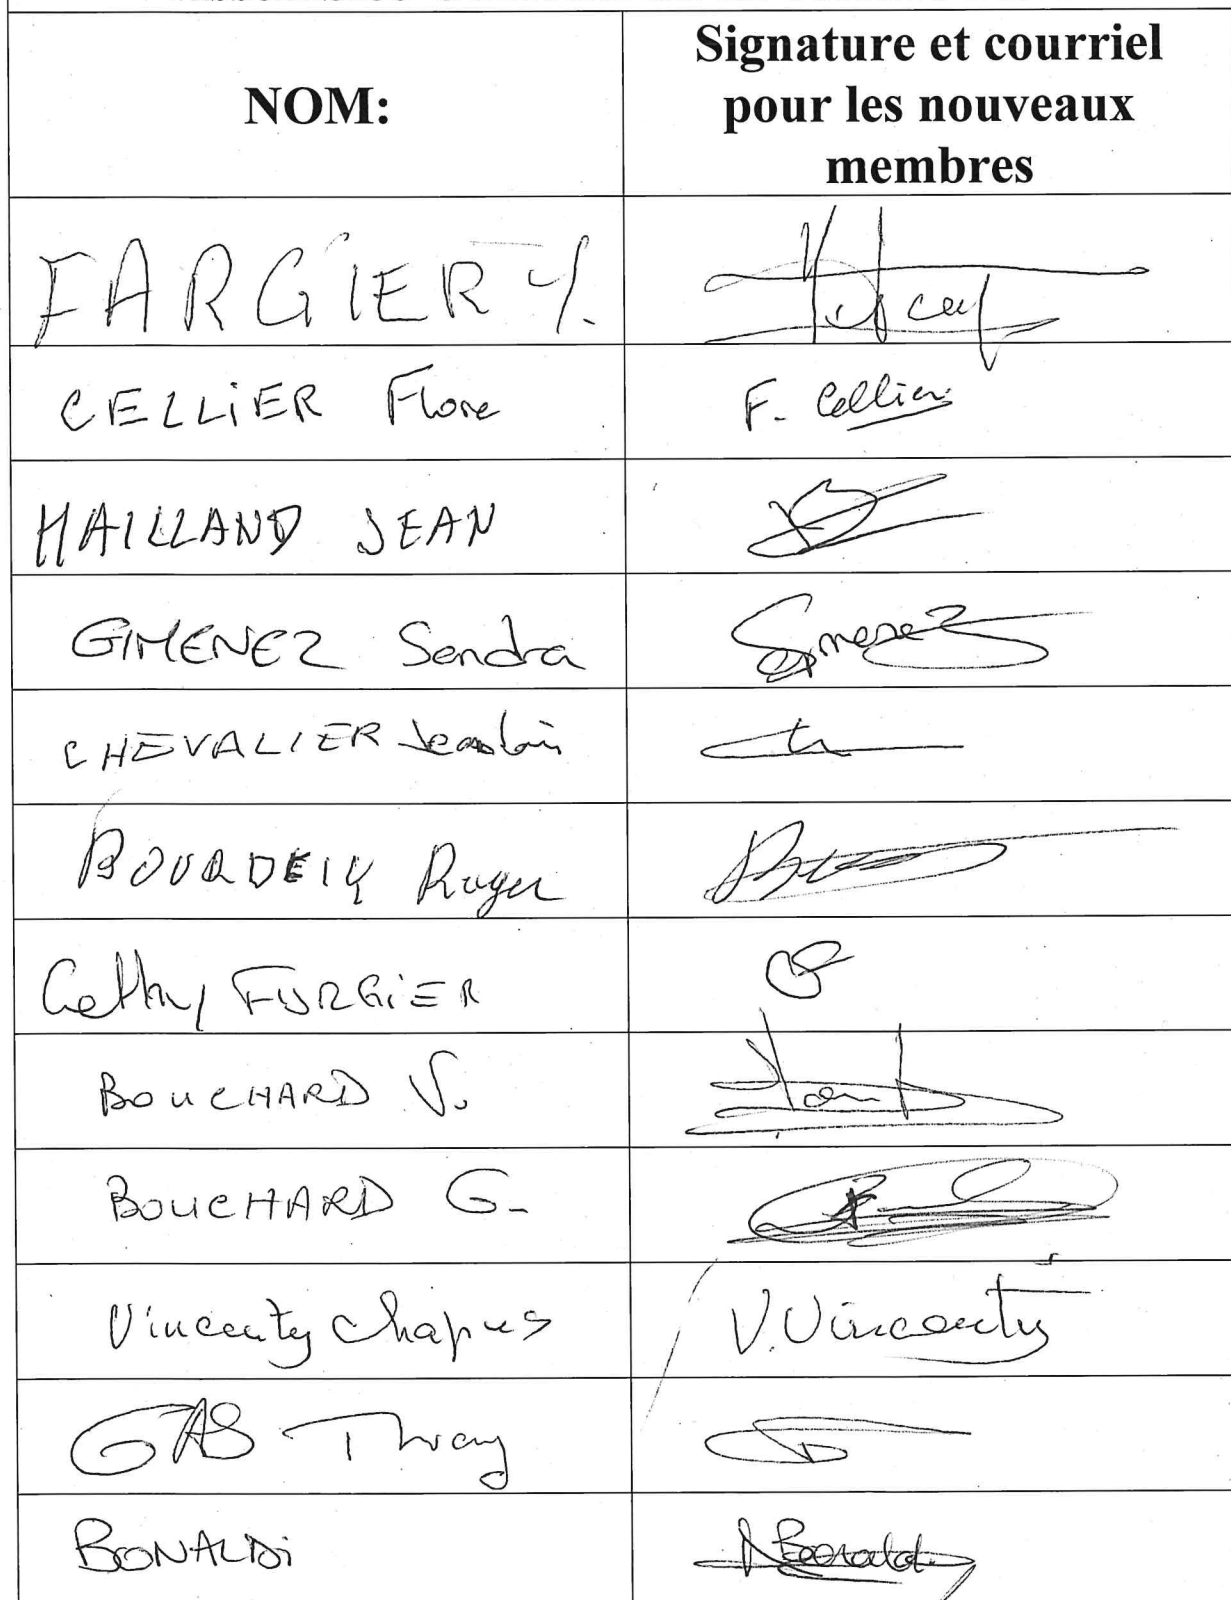 NOM:
Signature et courriel
pour les nouveaux
membres
FARGIER Y.
CELLiER Flore F. Cellier
HAILLAND JEAN
GIMENEZ Sandra Gimenez
CHEVALIER
Roger
Cathy FURGiER
BOUCHARD V.
BOUCHARD G.
Vincenty Chapus V. Vincenty
GAS
BONALDi